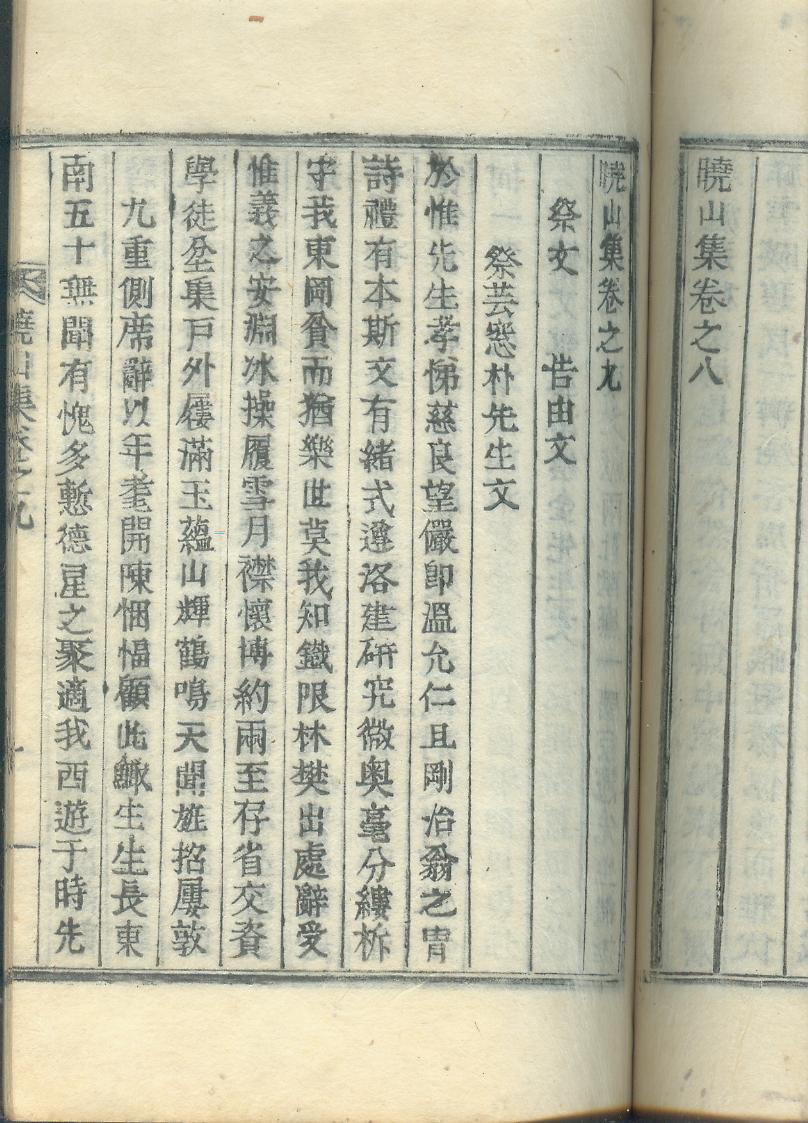 曉山集卷之八
曉山集卷之九
祭文 告由文
祭芸窓朴先生文
於惟先生孝悌慈良望儼卽溫允仁且剛冶翁之冑
詩禮有本斯文有緖式遵洛建硏究微奧毫分縷柝
守我東岡貧而猶樂世莫我知鐵限林樊出處辭受
惟義之安淵氷操履雪月襟懷博約兩至存省交資
學徒坌集戶外屨滿玉蘊山輝鶴鳴天聞旌招屢敦
九重側席辭以年耄開陳悃愊顧此鯫生生長東
南五十無聞有愧多慙德星之聚適我西遊于時先
曉山集卷之九 一